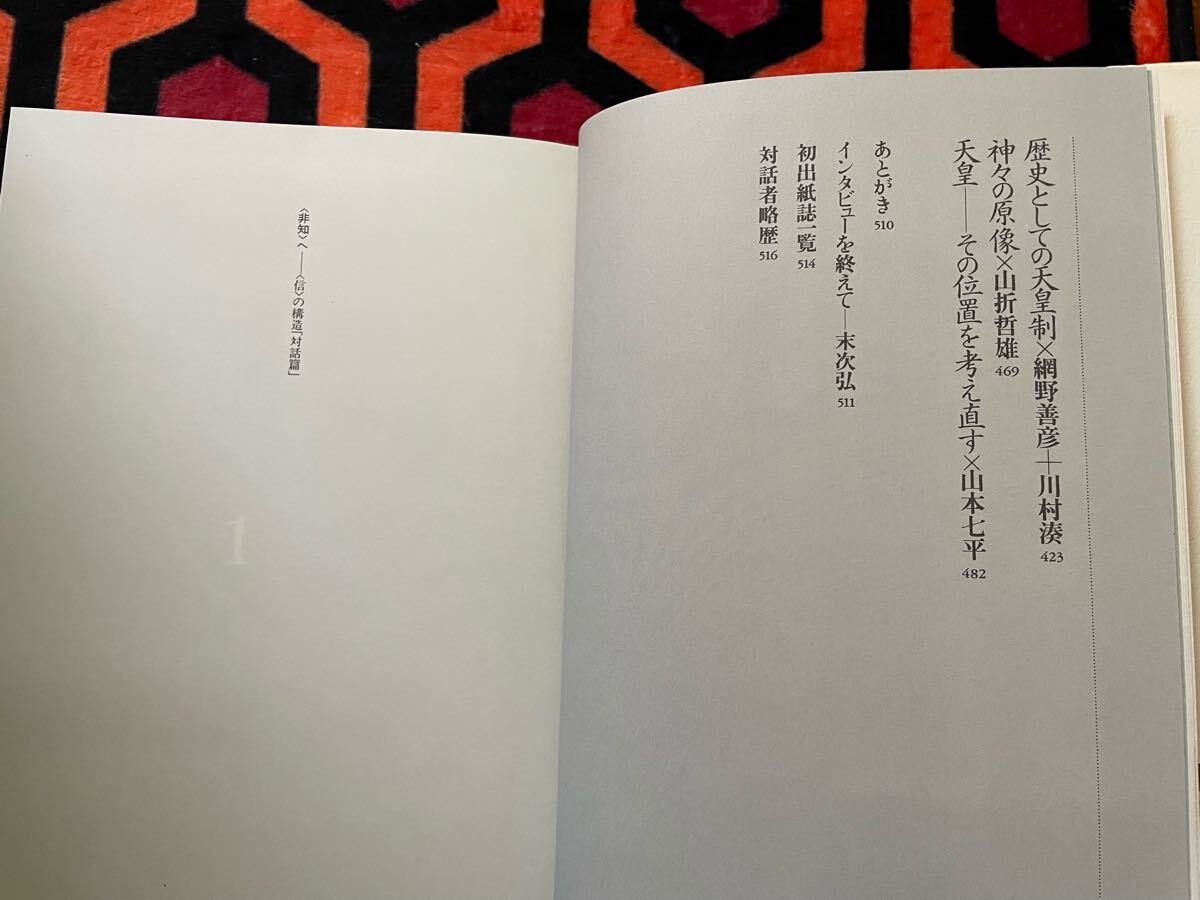 歴史としての天皇制×網野善彦＋川村湊 423
神々の原像×山折哲雄 469
天皇――その位置を考え直す×山本七平 482
あとがき 510
インタビューを終えて―末次弘 511
初出紙誌一覧 514
対話者略歴 516
〈非知〉へ――〈信〉の構造「対話篇」
1